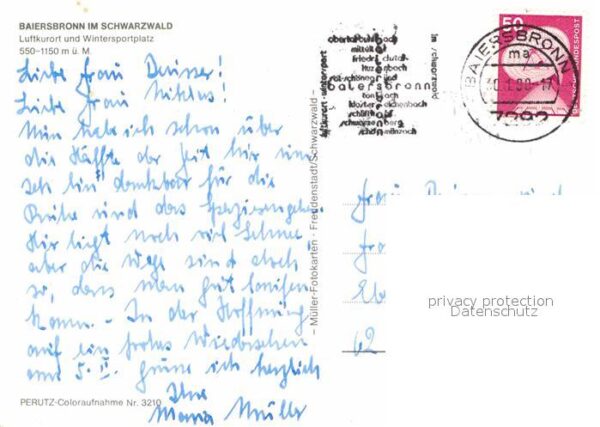 BAIERSBRONN IM SCHWARZWALD
Luftkurort und Wintersportplatz
550–1150 m ü. M.
Liebe Frau !
Liebe Frau Niklus!
Nun habe ich schon über
die Hälfte der Zeit hier um.
Ich bin dankbar für die
Ruhe und das Spazierengehen.
Hier liegt noch viel Schnee
aber die Wege sind doch
so, dass man gut laufen
kann. - In der Hoffnung
auf ein frohes Wiedersehen
am 5. II. grüsse ich herzlich
Ihre
Maria Müller
PERUTZ-Coloraufnahme Nr. 3210
– Müller-Fotokarten · Freudenstadt/Schwarzwald –
luftkurort · wintersport
obertal buhlbach
mitteltal
friedrichstal
tanzenbach
röt-schönegründ
baiersbronn
tonbach
kloster reichenbach
schwarzenberg
schönmünzach
im schwarzwald
50
DEUTSCHE BUNDESPOST
BAIERSBRONN
ma
7292
Frau
Fra
62
privacy protection
Datenschutz